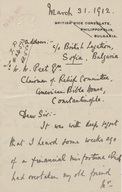 March 31. 1912.
BRITISH VICE CONSULATE,
PHILIPPOPOLIS,
BULGARIA.
Address:
c/o British Legation,
Sofia, Bulgaria
W. W. Peet Esq.
Chairman of Relief Committee
American Bible House
Constantinople.
Dear Sir:
It was with deep regret
that I heard some weeks ago
of a financial misfortune which
had overtaken my old friend